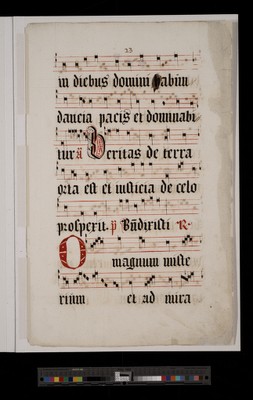 23
in diebus domini habun
dancia pacis et dominabi
tur a Veritas de terra
orta est et iusticia de celo
prosperit. p Bndixisti R.
O magnum miste
rium et ad mira